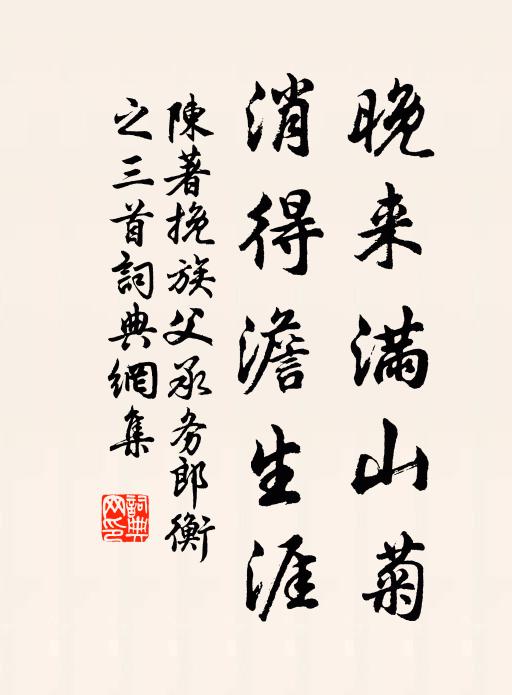 晚来满山菊
消得澹生涯
陳著挽族父承务郎衡
之三首詞典網集
詞典网印